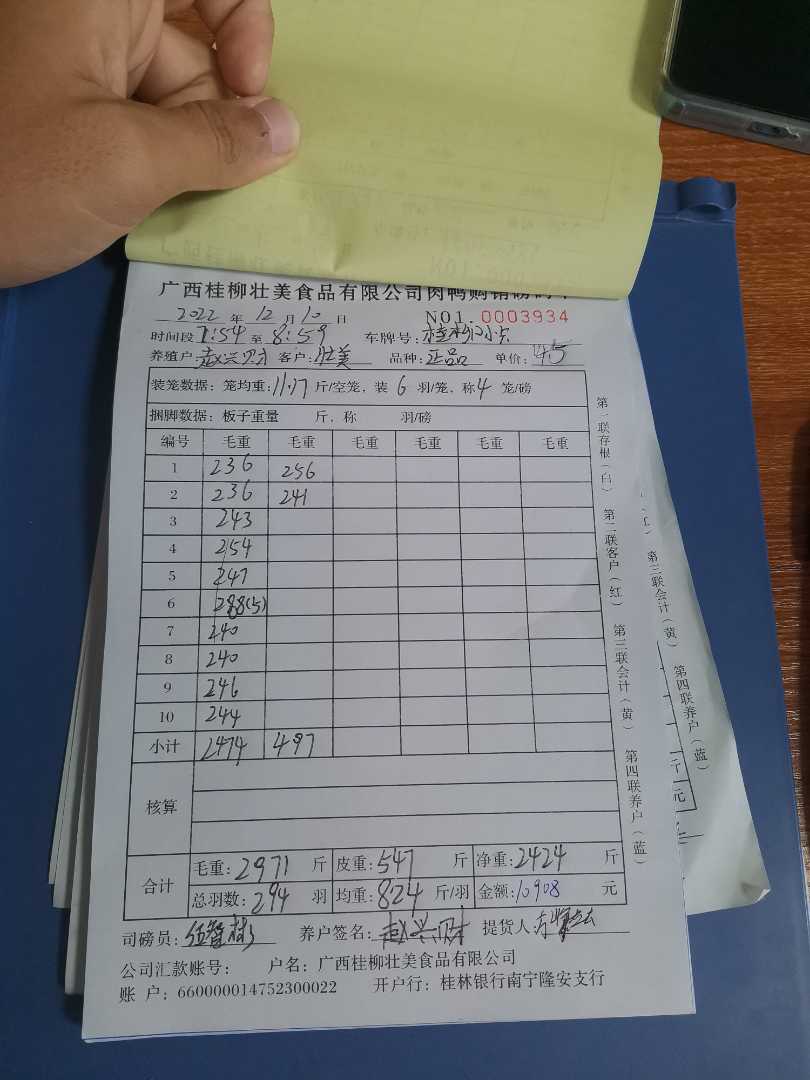 广西桂柳壮美食品有限公司肉鸭购销磅码单
2022 年 12 月 10 日 NO1. 0003934
时间段 7:54 至 8:59 车牌号:
养殖户: 赵兴财 客户: 壮美 品种: 正品 单价: 4.5
装笼数据: 笼均重: 11.17 斤/空笼, 装 6 羽/笼, 称 4 笼/磅
捆脚数据: 板子重量 斤, 称 羽/磅
编号 毛重 毛重 毛重 毛重 毛重 毛重
1 236 256
2 236 241
3 243
4 254
5 247
6 288(5)
7 240
8 240
9 246
10 244
小计 2474 497
核算
合计 毛重: 2971 斤 皮重: 547 斤 净重: 2424 斤
总羽数: 294 羽 均重: 824 斤/羽 金额: 10908 元
司磅员: 养户签名: 赵兴财 提货人:
公司汇款账号: 户名: 广西桂柳壮美食品有限公司
账 户: 660000014752300022 开户行: 桂林银行南宁隆安支行
第一联存根(白) 第二联客户(红) 第三联会计(黄) 第四联养户(蓝)
第三联会计(黄) 第四联养户(蓝)
斤
元